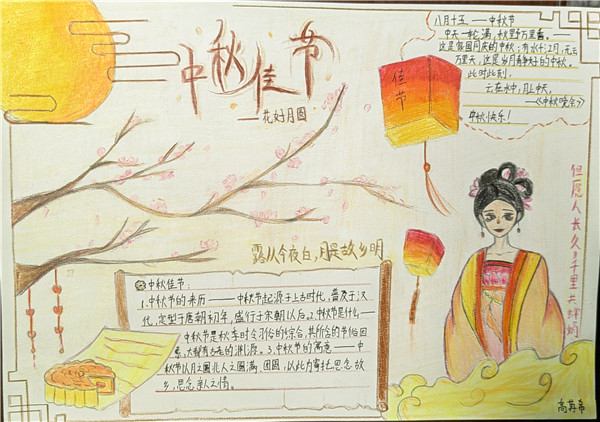 中秋佳节
——花好月圆
佳节
八月十五——中秋节
中天一轮满,秋野万里香。——
这是举国同庆的中秋;有水千江月,无云
万里天,这是岁月静好的中秋。
此时此刻,
云在水中,月上中天。
中秋快乐!
但愿人长久,千里共婵娟
露从今夜白,月是故乡明
中秋佳节:
1.中秋节的来历——中秋节起源于上古时代,普及于汉
代,定型于唐朝初年,盛行于宋朝以后。2.中秋节是什么—
中秋节是秋季时令习俗的综合,其所含的节俗因
素,大都有古老的渊源。3.中秋节的寓意——中
秋节以月之圆兆人之团圆,以此为寄托思念故
乡,思念亲人之情。